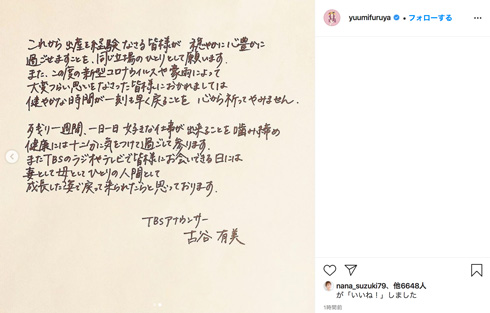 これから出産を経験なさる皆様が 穏やかに心豊かに
過ごせますことを、同じ立場のひとりとして願います。
また、この度の新型コロナウイルスや豪雨によって
大変つらい思いをなさった皆様におかれましては
健やかな時間が一刻も早く戻ることを 心から祈ってやみません。
残り一週間、一日一日 好きな仕事が出来ることを噛み締め
健康には十二分に気をつけて過ごして参ります。
またTBSのラジオやテレビで皆様にお会いできる日には
妻として母としてひとりの人間として
成長した姿で戻って来られたらと思っております。
TBSアナウンサー
古谷 有美
yuumifuruya ・ フォローする
nana_suzuki79、他6648人
が「いいね！」しました
1時間前